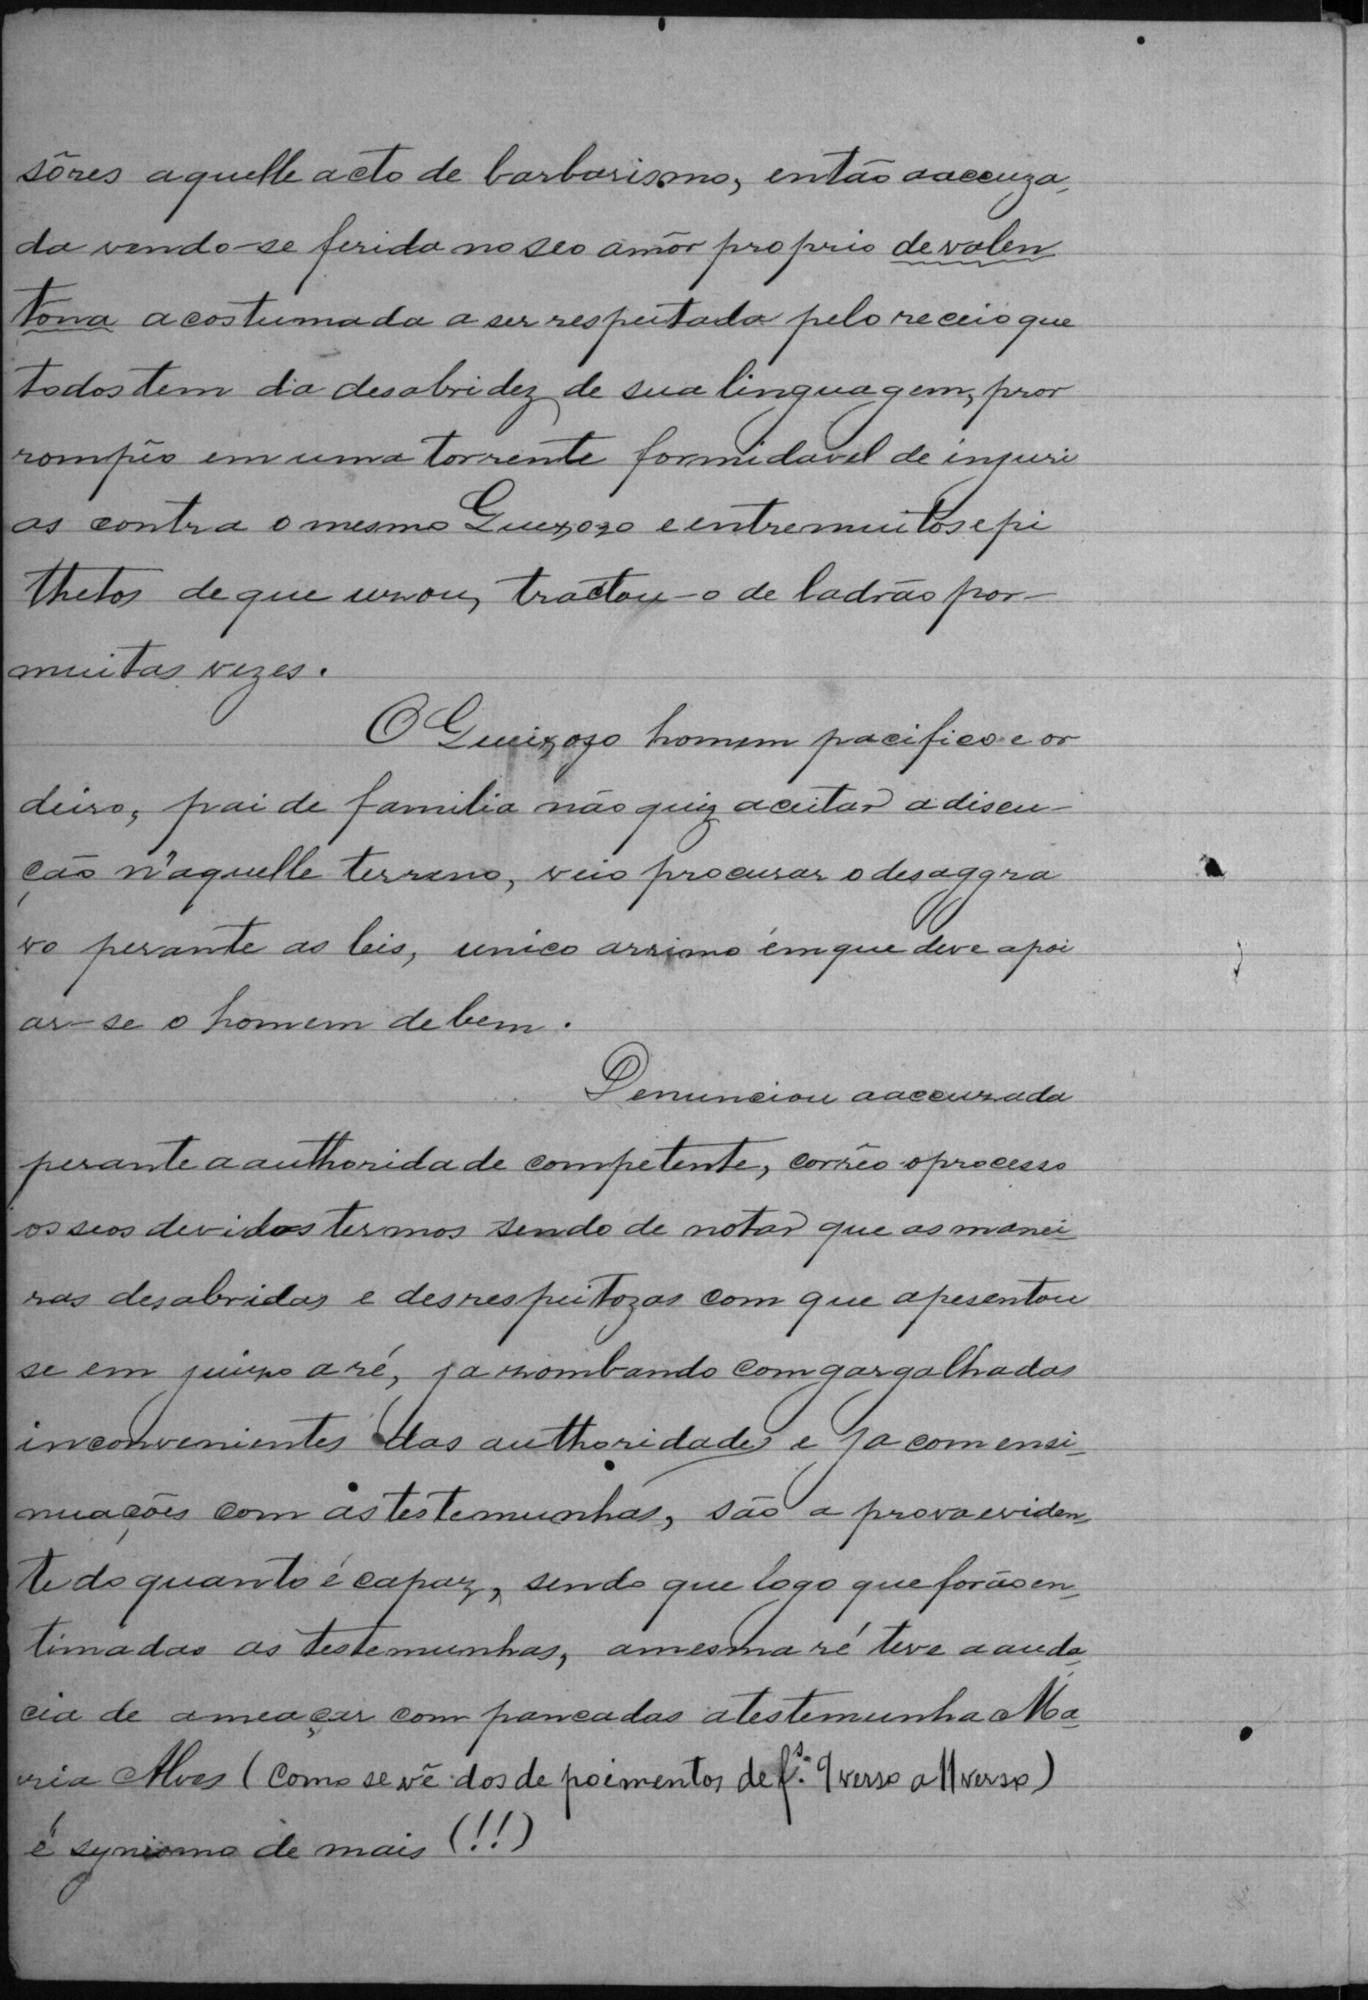 sôres aquelle acto de barbarismo, então a accuza-
da vendo-se ferida no seo amôr proprio de valen
tona acostumada a ser respeitada pelo receio que
todos tem da desabridez de sua linguagem, pror
rompêo em uma torrente formidavel de injuri
as contra o mesmo Queixozo e entre muitos epi
thetos de que uzou, tractou-o de ladrão por-
muitas vezes.
O Queixozo homem pacifico e or
deiro, pai de familia não quiz aceitar a discu-
ção n'aquelle terreno, veio procurar o desaggra
vo perante as leis, unico arrimo em que deve apoi
ar-se o homem de bem.
Denunciou a accuzada
perante a authoridade competente, corrêo o processo
os seos devidos termos sendo de notar que as manei-
ras desabridas e desrespeitozas com que apesentou
se em juizo a ré, ja zombando com gargalhadas
inconvenientes das authoridades e ja com ensi-
nuações com as testemunhas, são a prova eviden-
te do quanto é capaz, sendo que logo que forão en-
timadas as testemunhas, a mesma ré teve a auda-
cia de ameaçar com pancadas a testemunha Ma-
ria Alves (como se vê dos depoimentos de fs. 9 verso a 11 verso)
é synismo de mais (!!)